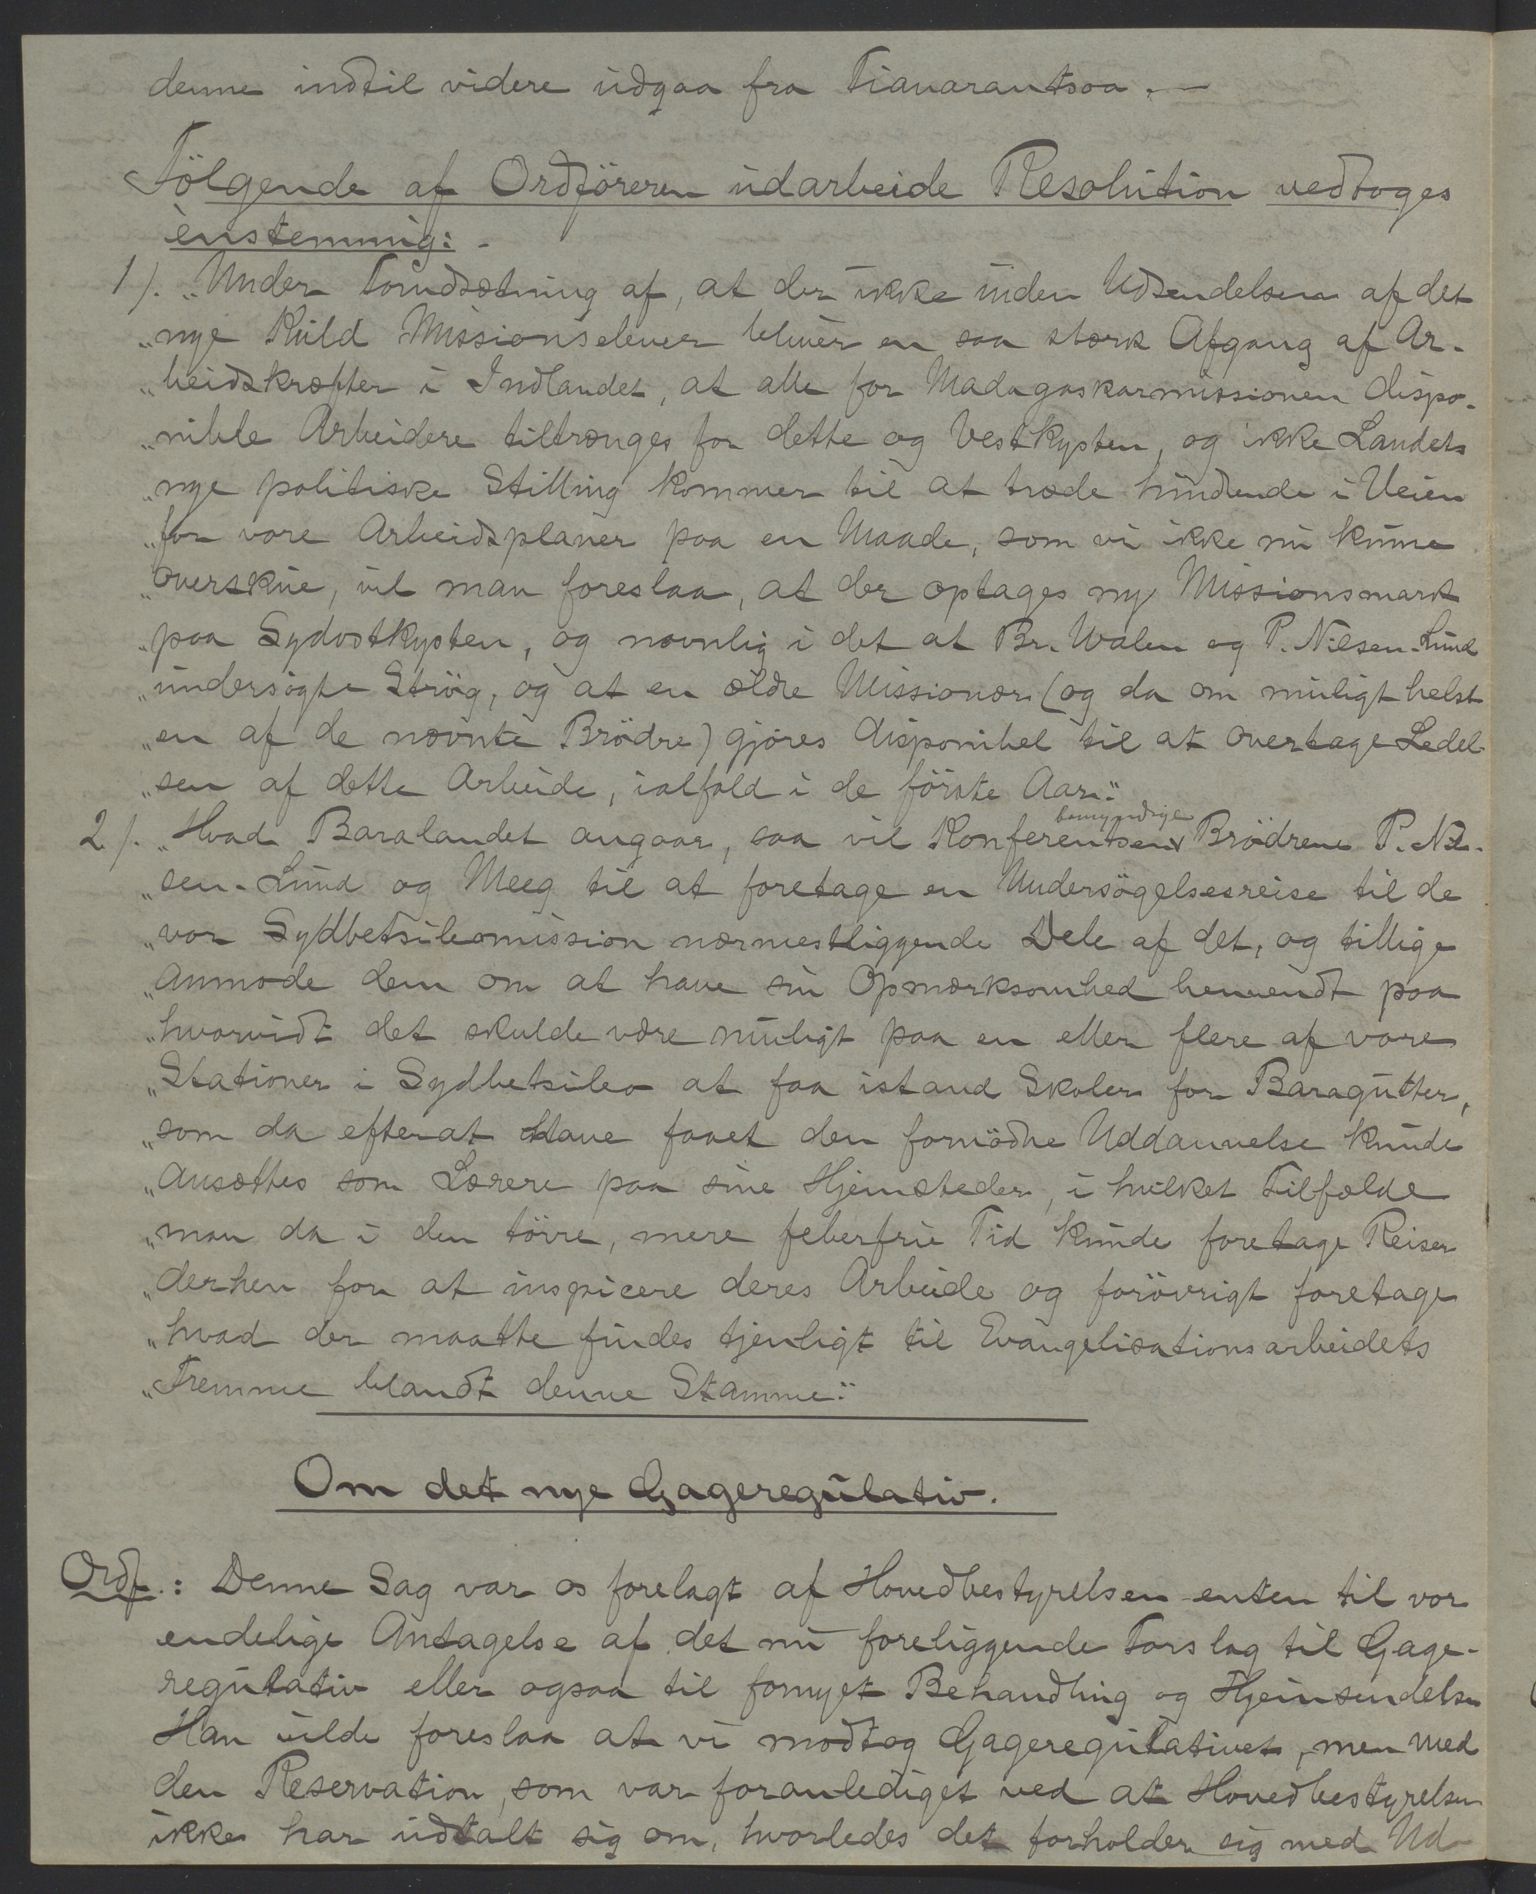 denne indtil videre udgaa fra Fianarantsoa. —
Følgende af Ordføreren udarbeide Resolution vedtoges
enstemmig: -
1). „Under Forudsætning af, at der ikke inden Udsendelsen af det
„nye Kuld Missionselever bliver en saa stærk Afgang af Ar-
„beidskræfter i Indlandet, at alle for Madagaskarmissionen dispo-
„nible Arbeidere tiltrænges for dette og Vestkysten, og ikke Landets
„nye politiske Stilling kommer til at træde hindrende i Veien
„for vore Arbeidsplaner paa en Maade, som vi ikke nu kunne
„overskue, vil man foreslaa, at der optages ny Missionsmark
„paa Sydostkysten, og navnlig i det at Br. Walen og P. Nilsen-Lund
„undersøgte Strøg, og at en ældre Missionær (og da om muligt helst
„en af de nævnte Brødre) gjøres disponibel til at overtage Ledel-
„sen af dette Arbeide, ialfald i de første Aar."
2). „Hvad Baralandet angaar, saa vil Konferentsen bemyndige Brødrene P. Nil-
„sen-Lund og Meeg til at foretage en Undersøgelsesreise til de
„vor Sydbetsileomission nærmestliggende Dele af det, og tillige
„anmode dem om at have sin Opmærksomhed henvendt paa
„hvorvidt det skulde være muligt paa en eller flere af vore
„Stationer i Sydbetsileo at faa istand Skoler for Baragutter,
„som da efterat have faaet den fornødne Uddannelse kunde
„ansættes som Lærere paa sine Hjemsteder, i hvilket Tilfælde
„man da i den tørre, mere feberfrie Tid kunde foretage Reiser
„derhen for at inspicere deres Arbeide og forøvrigt foretage
„hvad der maatte findes tjenligt til Evangelisationsarbeidets
„Fremme blandt denne Stamme."
Om det nye Gageregulativ.
Ordf.: Denne Sag var os forelagt af Hovedbestyrelsen enten til vor
endelige Antagelse af det nu foreliggende Forslag til Gage-
regulativ eller ogsaa til fornyet Behandling og Hjemsendelse
Han vilde foreslaa at vi modtog Gageregulativet, men med
den Reservation, som var foranlediget ved at Hovedbestyrelsen
ikke har udtalt sig om, hvorledes det forholder sig med Ud-